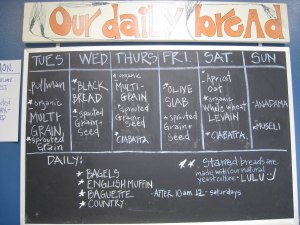 Our daily bread
MON.
TUES WED THURS FRI. SAT. SUN
Pullman
organic
MULTI-
GRAIN
sprouted
Grain
★ BLACK
BREAD
★ sprouted
Grain +
Seed
★ organic
MULTI-
GRAIN
★ sprouted
Grain +
Seed
CIABATTA
★ OLIVE
SLAB
★ sprouted
Grain +
Seed
Apricot
oat
★ organic
Whole wheat
LEVAIN
CIABATTA
ANADAMA
MUSELI
DAILY:
★ BAGELS
★ ENGLISH MUFFIN
★ BAGUETTE
★ COUNTRY
- AFTER 10am - saturdays
★ Starred breads are
made with our natural
yeast culture - LULU